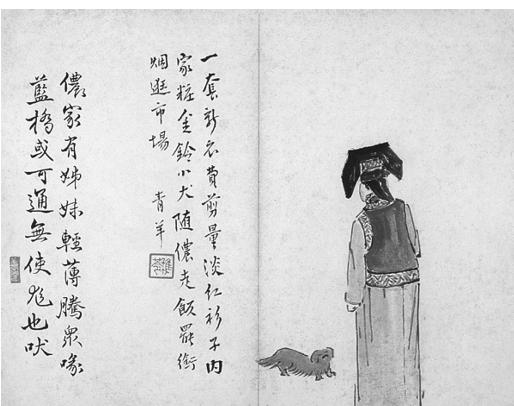 一套新衣費剪量淡红衫子内
家粧金鈴小犬随儂走飯罷銜
烟逛市場 青羊
儂家有姊妹輕薄騰衆喙
藍橋或可通無使尨也吠